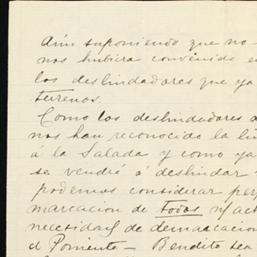 Aún suponiendo que no
nos hubiera convenido en
los deslindadores que ya
terrenos.
Como los deslindadores
nos han reconocido la
á la Salada y como ya
se vendió á deslindar
podemos considerar
marcacion de todos n/
necesidad de demarcacion
el Poniente — Bendito sea